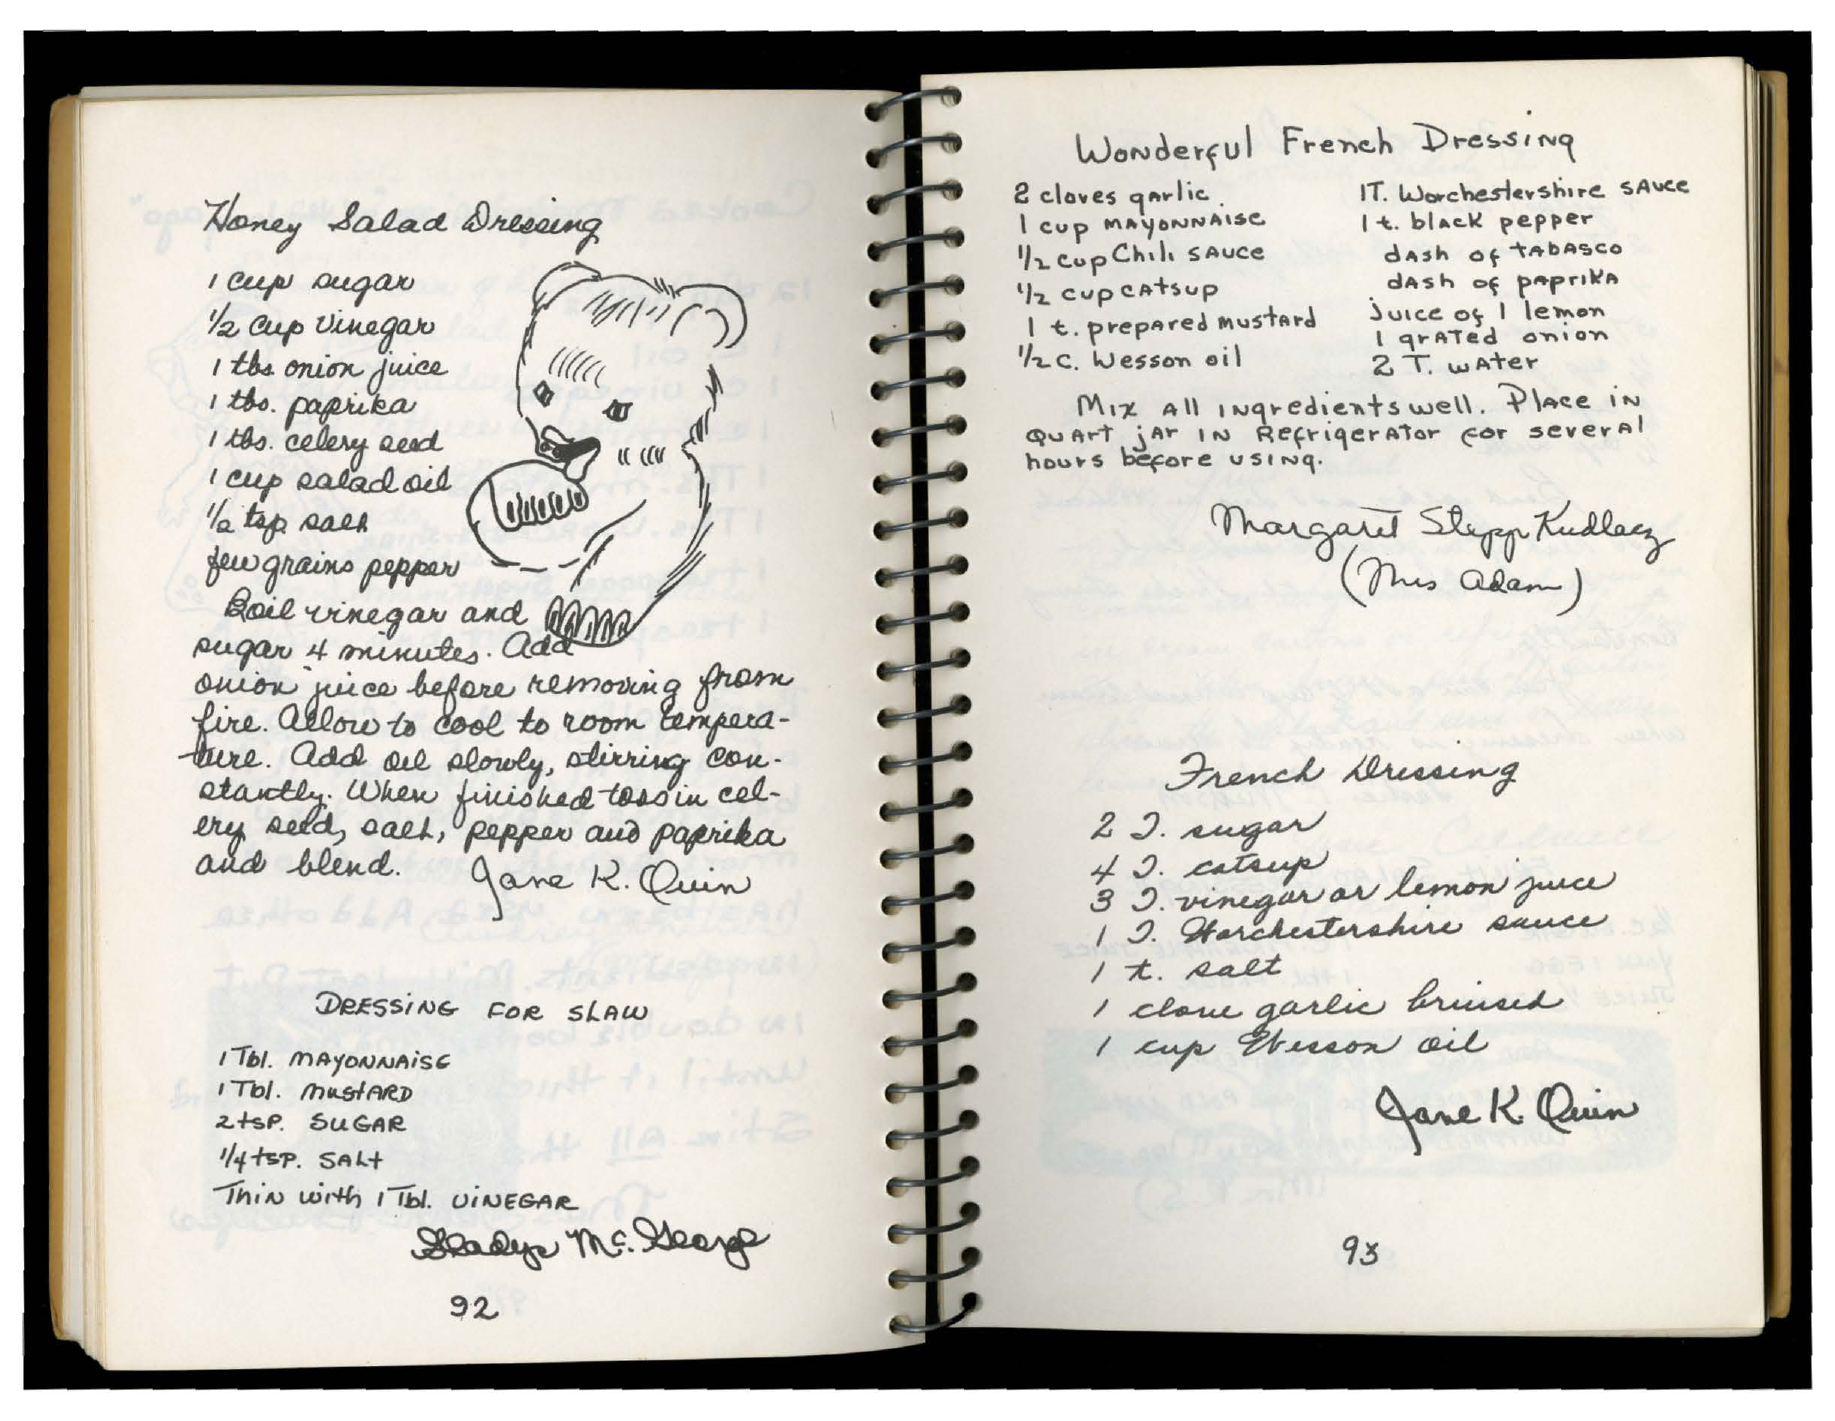 Honey Salad Dressing
1 cup sugar
1/2 cup vinegar
1 tbs onion juice
1 tbs. paprika
1 tbs. celery seed
1 cup salad oil
1/2 tsp salt
few grains pepper
Boil vinegar and
sugar 4 minutes. Add
onion juice before removing from
fire. Allow to cool to room tempera-
ture. Add oil slowly, stirring con-
stantly. When finished toss in cel-
ery seed, salt, pepper and paprika
and blend.
Jane K. Quin
DRESSING FOR SLAW
1 Tbl. MAYONNAISE
1 Tbl. MUSTARD
2 tsp. SUGAR
1/4 tsp. SALT
Thin with 1 Tbl. VINEGAR
Gladys Mc. George
92
Wonderful French Dressing
2 cloves garlic
1 cup MAYONNAISE
1/2 cup Chili SAUCE
1/2 cup CATSUP
1 t. prepared MUSTARD
1/2 c. Wesson oil
1T. Worchestershire SAUCE
1 t. black pepper
dASH of TABASCO
dASH of PAPRIKA
juice of 1 lemon
1 grated onion
2 T. WATER
Mix All INgredients well. Place in
QUART jAR IN Refrigerator for several
hours before using.
Margaret Stepp Kudlacz
(Mrs Adam)
French Dressing
2 T. sugar
4 T. catsup
3 T. vinegar or lemon juice
1 T. Worchestershire sauce
1 t. salt
1 clove garlic bruised
1 cup Wesson oil
Jane K. Quin
93